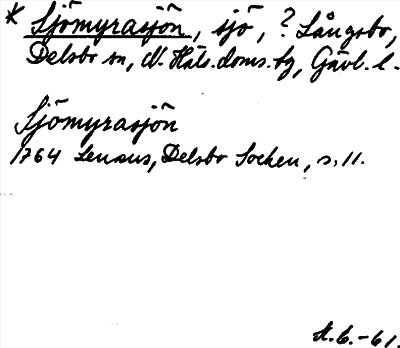 * Sjömyrasjön, sjö, ? Långsbo,
Delsbo sn, N. Häls. doms. tg, Gävl. l.
Sjömyrasjön
1764 Lenæus, Delsbo Socken, s. 11.
-61.